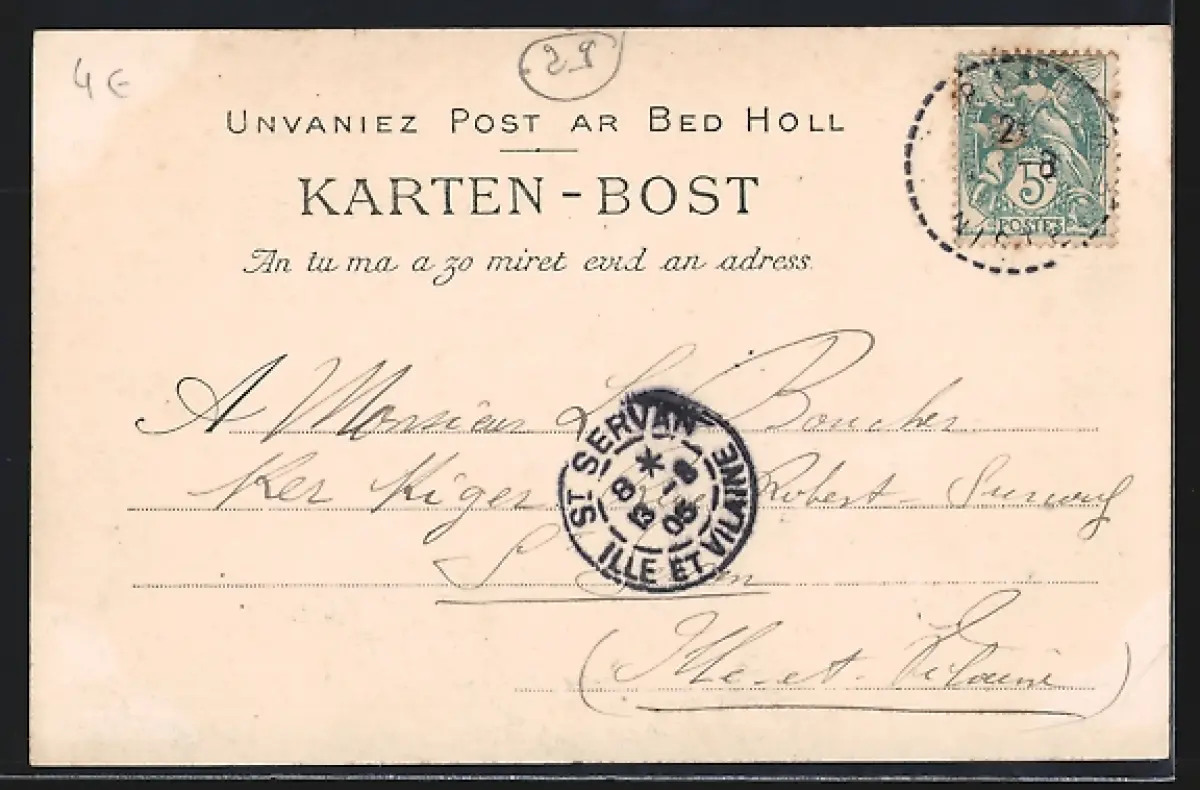 4 €
29
UNVANIEZ POST AR BED HOLL
KARTEN-BOST
An tu ma a zo miret evid an adress.
5
POSTES
A Monsieur Le Boucher
Ker Kiger Robert Surcouf
ST SERVAN
8 * 1-8
3 05
ILLE ET VILAINE
S Servan
(Ille-et-Vilaine)